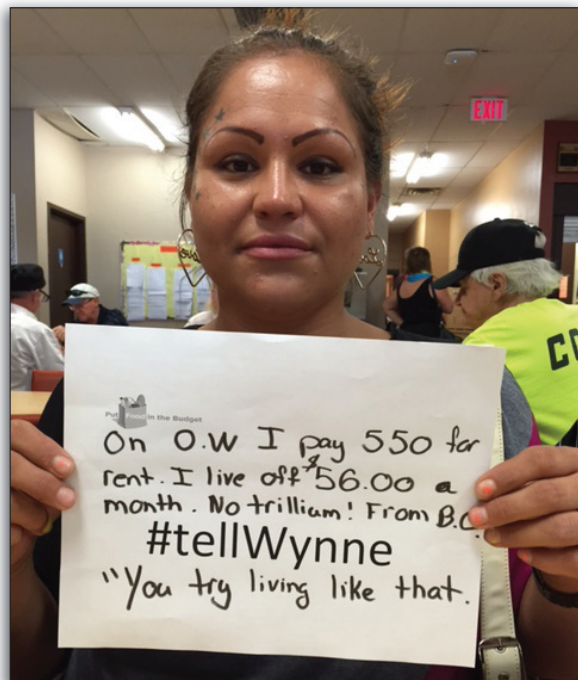 EXIT
CO
Put Food in the Budget
On O.W I pay 550 for
rent. I live off $56.00 a
month. No trillium! From B.C.
#tellWynne
"You try living like that.